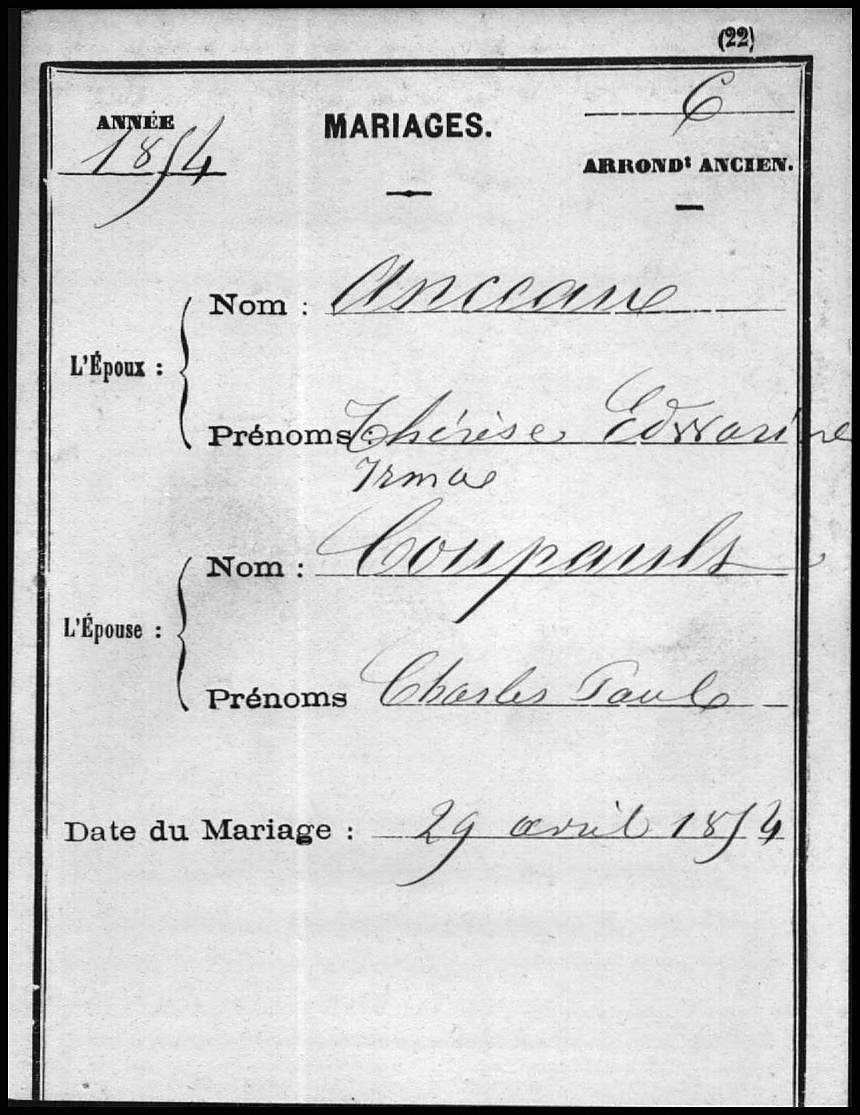 (22)
ANNÉE
1854
MARIAGES.
6
ARRONDt ANCIEN.
L'Époux :
Nom : Anceaux
Prénoms : Thérèse Edwarine
Irma
L'Épouse :
Nom : Coupault
Prénoms Charles Paul
Date du Mariage : 29 avril 1854